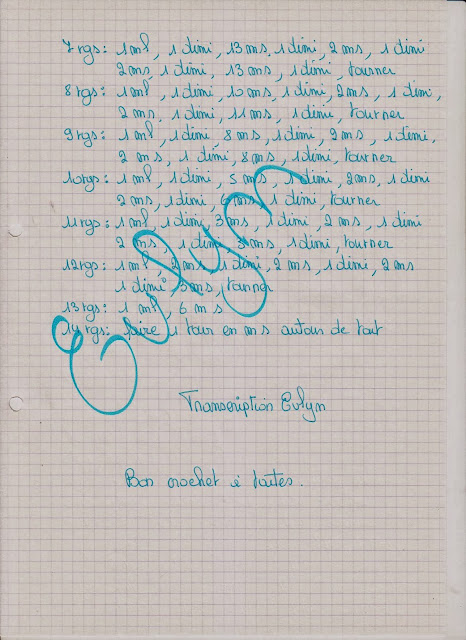 7 rgs: 1 ml, 1 dimi, 13 ms, 1 dimi, 2 ms, 1 dimi
2 ms, 1 dimi, 13 ms, 1 dimi, tourner
8 rgs: 1 ml, 1 dimi, ms, 1 dimi, 2 ms, 1 dimi,
2 ms, 1 dimi, 11 ms, 1 dimi, tourner
9 rgs: 1 ml, 1 dimi, 8 ms, 1 dimi, 2 ms, 1 dimi,
2 ms, 1 dimi, 8 ms, 1 dimi, tourner
10 rgs: 1 ml, 1 dimi, 5 ms, 1 dimi, 2 ms, 1 dimi
2 ms, 1 dimi, ms, 1 dimi, tourner
11 rgs: 1 ml, 1 dimi, 3 ms, 1 dimi, 2 ms, 1 dimi
2 ms, 1 dimi, 3 ms, 1 dimi, tourner
12 rgs: 1 ml, 2 ms, 1 dimi, 2 ms, 1 dimi, 2 ms
1 dimi, 3 ms, tourner
13 rgs: 1 ml, 6 ms
14 rgs: faire 1 tour en ms autour de tout
Evlyn
Transcription Evlyn
Bon crochet à toutes.